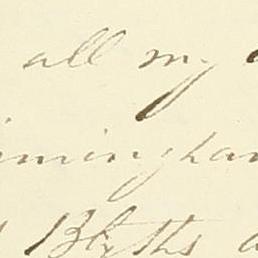 all my
imingham
Blyths